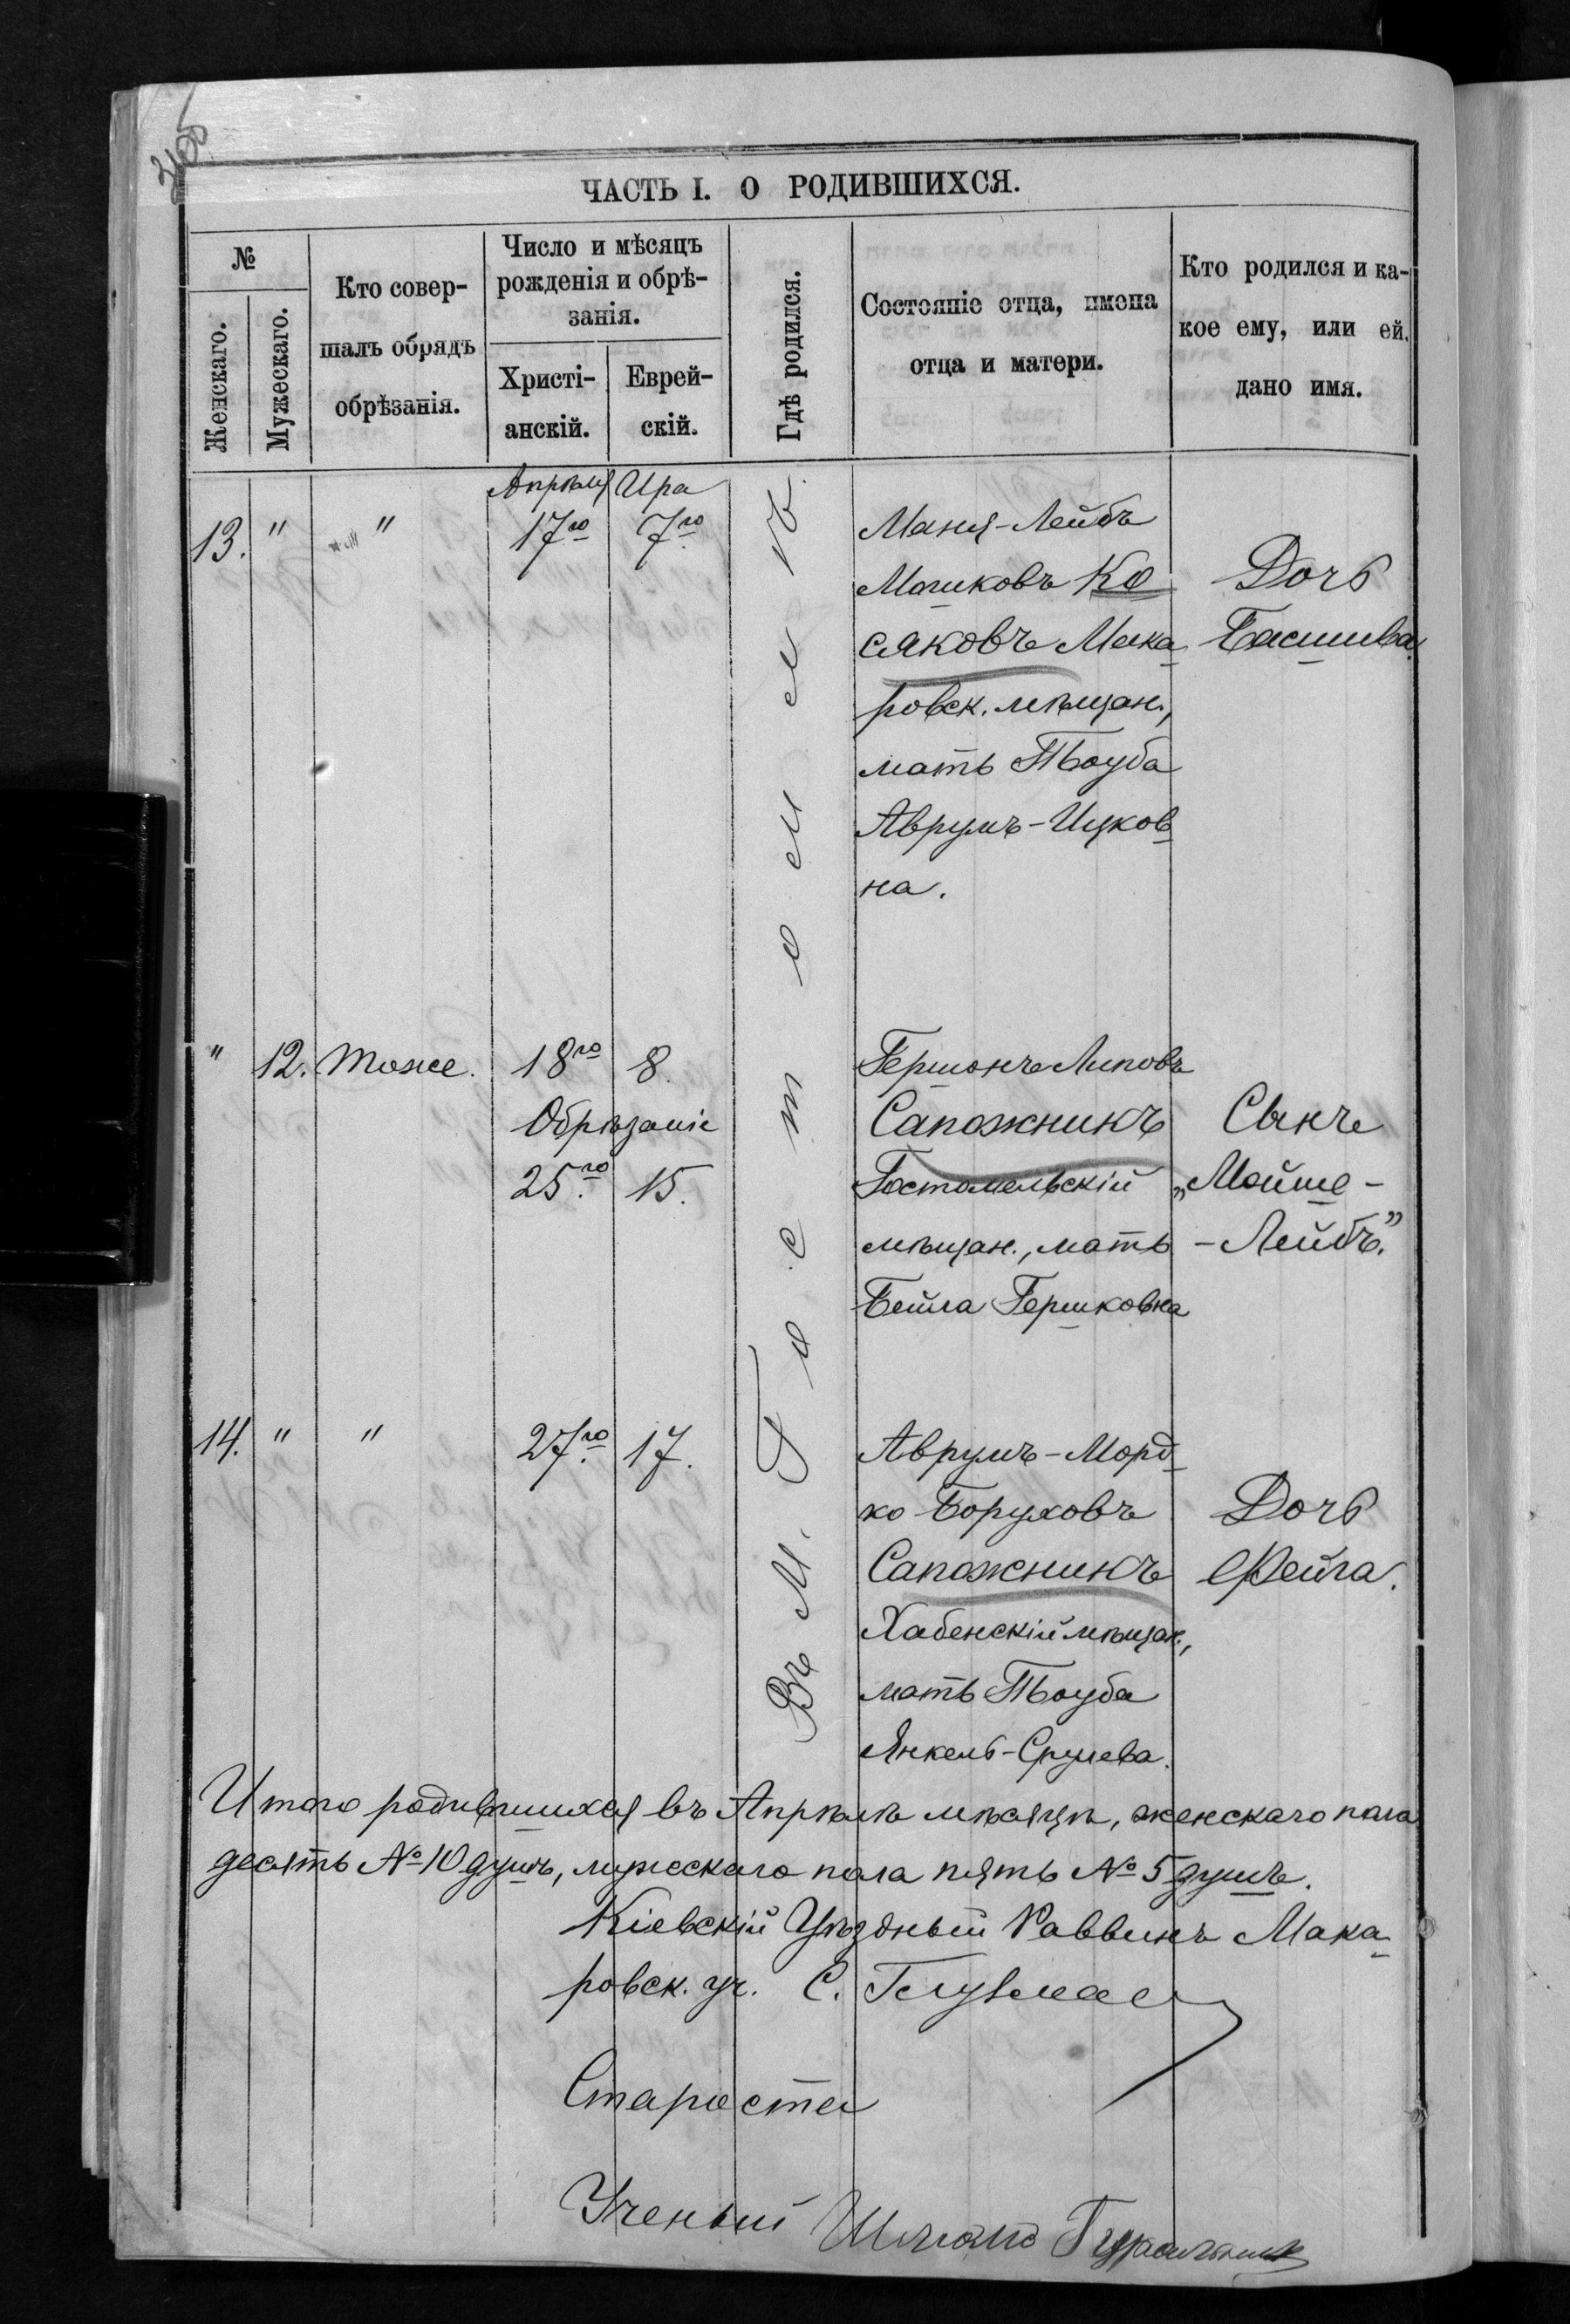 ЧАСТЬ I. О РОДИВШИХСЯ.
№
Женскаго.
Мужескаго.
Кто совер-
шалъ обрядъ
обрѣзанія.
Число и мѣсяцъ
рожденія и обрѣ-
занія.
Христі-
анскій.
Еврей-
скій.
Гдѣ родился.
Состояніе отца, имена
отца и матери.
Кто родился и ка-
кое ему, или ей.
дано имя.
Апрѣля Ира
13. " " 17го 7го
Въ М. Гостомелѣ.
Маня-Лейбъ
Мошковъ Ко
сяковъ Мака
ровск. мѣщан.,
мать Тъоуба
Аврумъ-Ицков
на.
Дочь
Басшива.
" 12. Тоже. 18го 8.
Обрѣзаніе
25го 15.
Гершонъ Липовъ
Сапожникъ
Гостомельскій
мѣщан., мать
Бейла Гершковна
Сынъ
„Мойше-
-Лейбъ."
14. " " 27го 17.
Аврумъ-Морд
ко Боруховъ
Сапожникъ
Хабенскій мѣщан.,
мать Тъоуба
Янкель-Срулева.
Дочь
Фейга.
Итого родившихся въ Апрѣлѣ мѣсяцѣ, женскаго пола
десять № 10 душъ, мужескаго пола пять № 5 душъ.
Кіевскій Уѣздный Раввинъ Мака
ровск. уч. С. Глузман
Староста
Ученый